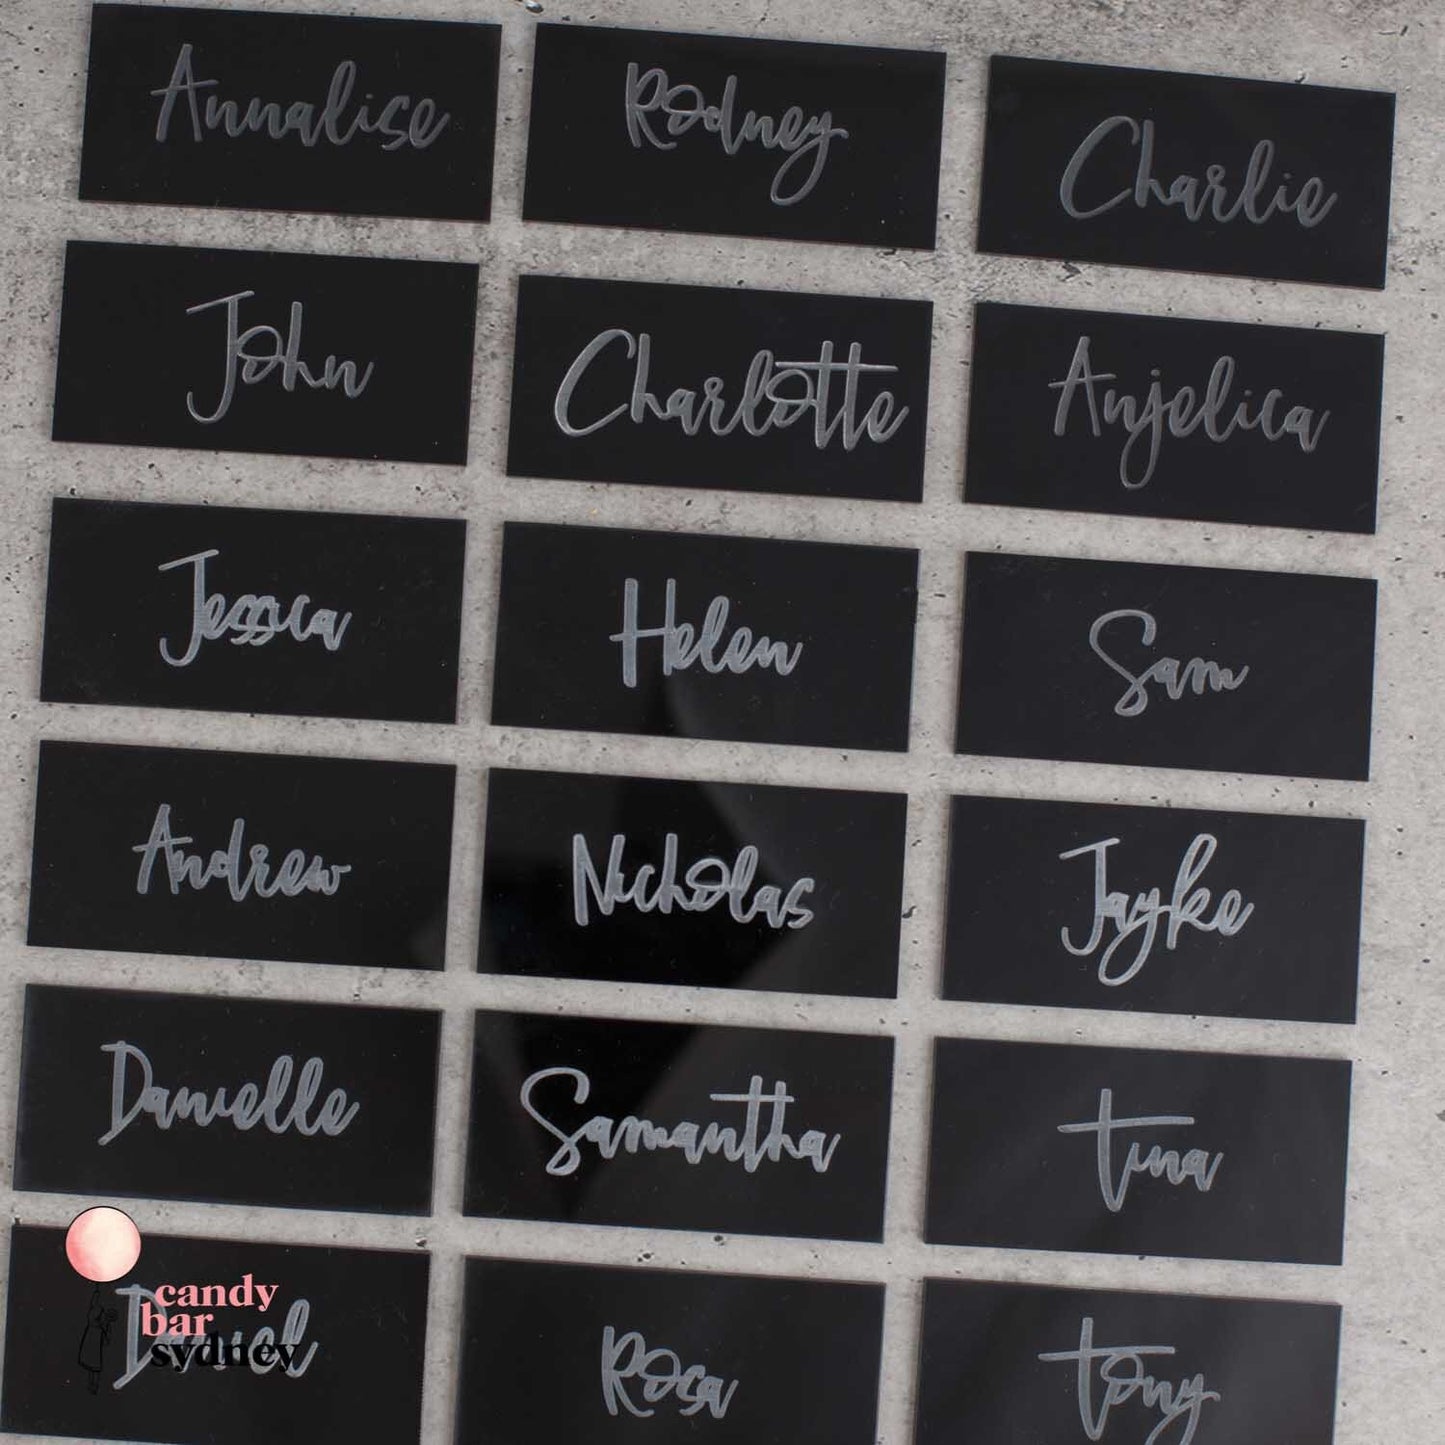 Annalise
Rodney
Charlie
John
Charlotte
Anjelica
Jessica
Helen
Sam
Andrew
Nicholas
Jayke
Danielle
Samantha
tina
Daniel
Rosa
tony
candy
bar
sydney